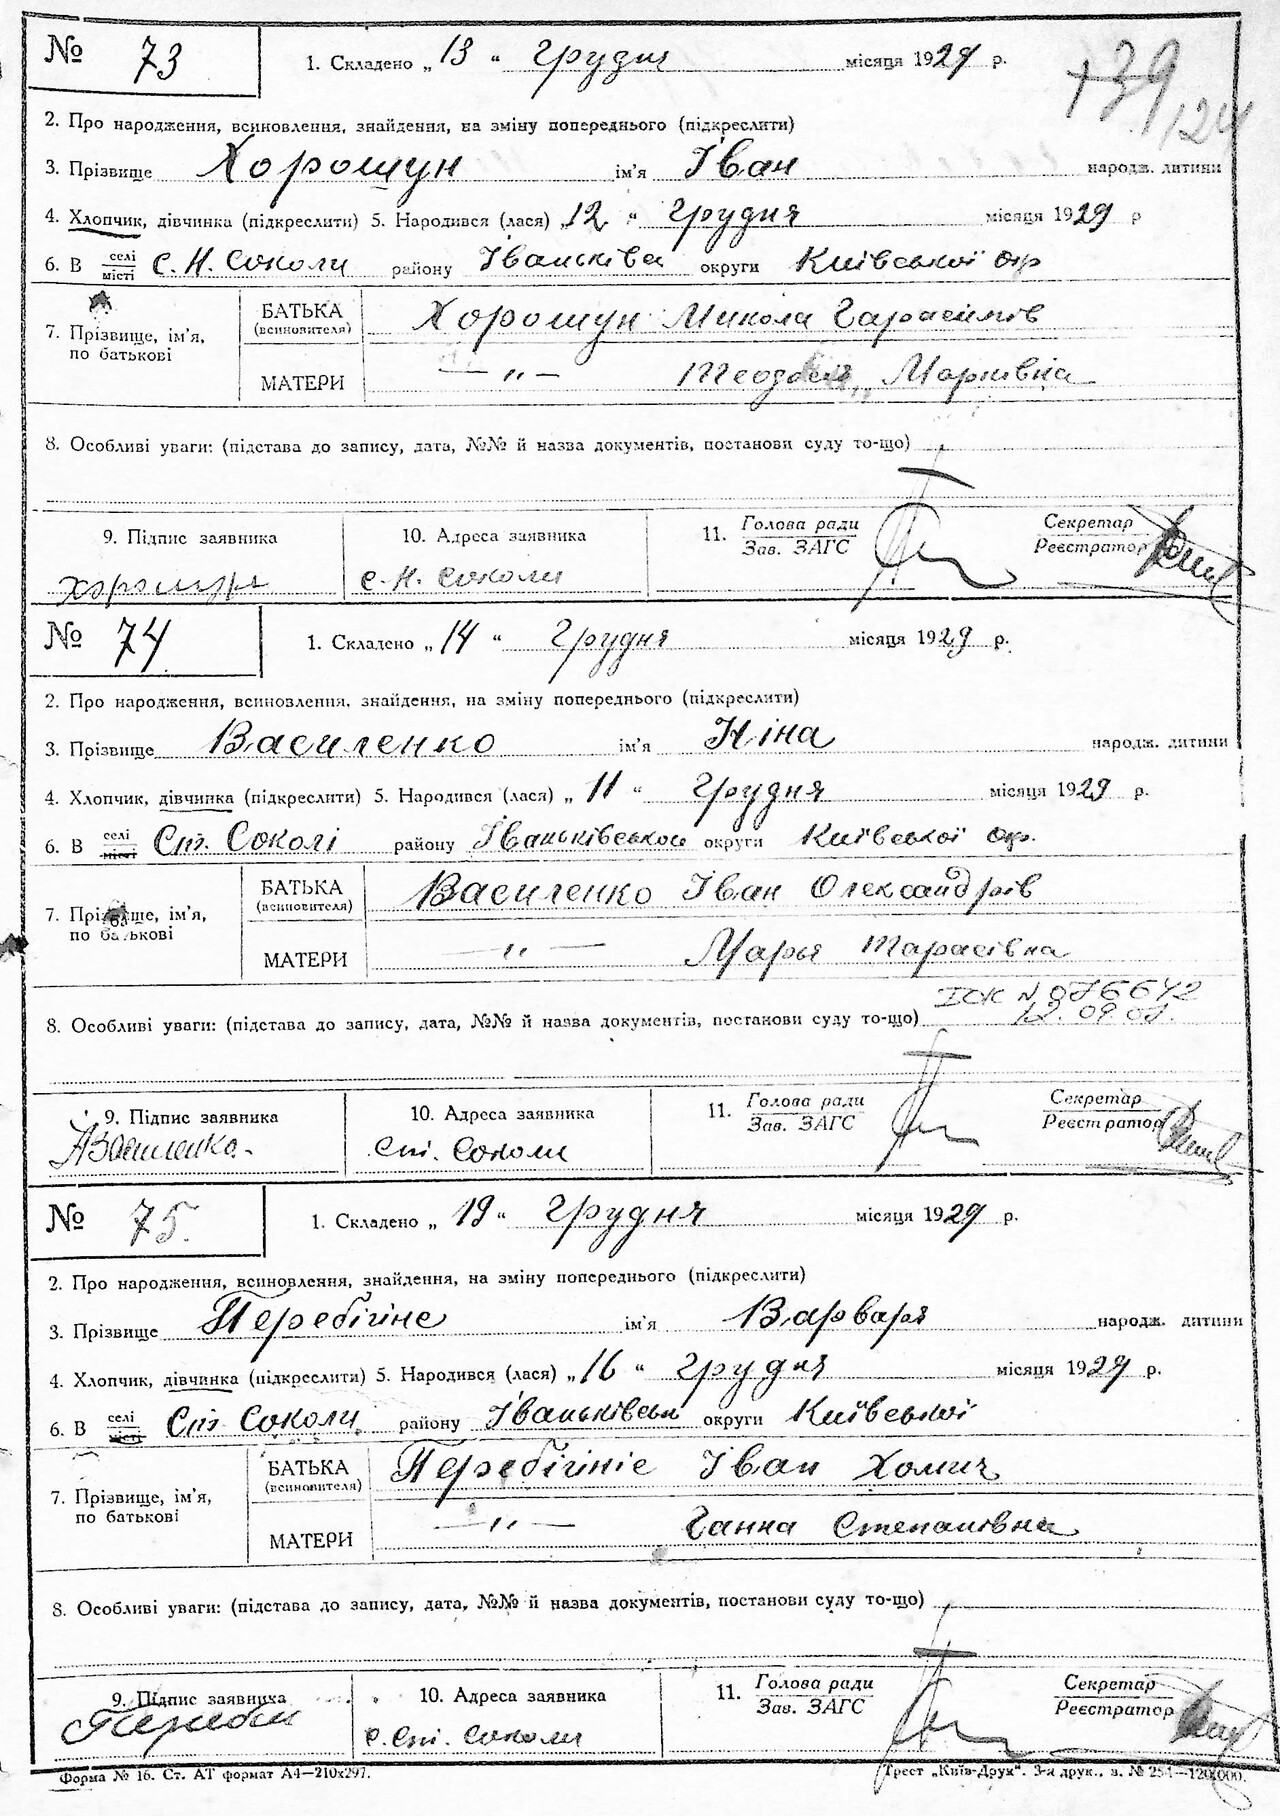 № 73 1. Складено „ 13 “ Грудня місяця 1929 р.
+39/124
2. Про народження, всиновлення, знайдення, на зміну попереднього (підкреслити)
3. Прізвище Хорошун ім'я Іван народж. дитини
4. Хлопчик, дівчинка (підкреслити) 5. Народився (лася) „ 12 “ Грудня місяця 1929 р
6. В селі/місті С. Н. Соколи району Іваньківс округи Київської окр
7. Прізвище, ім'я, по батькові
БАТЬКА (всиновителя) Хорошун Микола Гарасимів
МАТЕРИ — „ — Марківна
8. Особливі уваги: (підстава до запису, дата, №№ й назва документів, постанови суду то-що)
9. Підпис заявника 10. Адреса заявника 11. Голова ради / Зав. ЗАГС Секретар / Реєстратор
Хорошун С. Н. Соколи
№ 74 1. Складено „ 14 “ Грудня місяця 1929 р.
2. Про народження, всиновлення, знайдення, на зміну попереднього (підкреслити)
3. Прізвище Василенко ім'я Ніна народж. дитини
4. Хлопчик, дівчинка (підкреслити) 5. Народився (лася) „ 11 “ Грудня місяця 1929 р.
6. В селі/місті Ст. Соколі району Іваньківського округи Київської окр.
7. Прізвище, ім'я, по батькові
БАТЬКА (всиновителя) Василенко Іван Олександрів
МАТЕРИ — „ — Марья Тарасівна
8. Особливі уваги: (підстава до запису, дата, №№ й назва документів, постанови суду то-що) ІОК N 076642
12.09.01.
9. Підпис заявника 10. Адреса заявника 11. Голова ради / Зав. ЗАГС Секретар / Реєстратор
Василенко Ст. Соколи
№ 75. 1. Складено „ 19 “ Грудня місяця 1929 р.
2. Про народження, всиновлення, знайдення, на зміну попереднього (підкреслити)
3. Прізвище Перебійне ім'я Варваря народж. дитини
4. Хлопчик, дівчинка (підкреслити) 5. Народився (лася) „ 16 “ Грудня місяця 1929 р.
6. В селі/місті Ст. Соколи району Іваньківськ округи Київської
7. Прізвище, ім'я, по батькові
БАТЬКА (всиновителя) Перебійніс Іван Хомич
МАТЕРИ — „ — Ганна Степанівна
8. Особливі уваги: (підстава до запису, дата, №№ й назва документів, постанови суду то-що)
9. Підпис заявника 10. Адреса заявника 11. Голова ради / Зав. ЗАГС Секретар / Реєстратор
С. Ст. Соколи
Форма № 16. Ст. АТ формат А4—210х297. Трест „Київ-Друк“. 3-я друк., з. № 254—120(000).